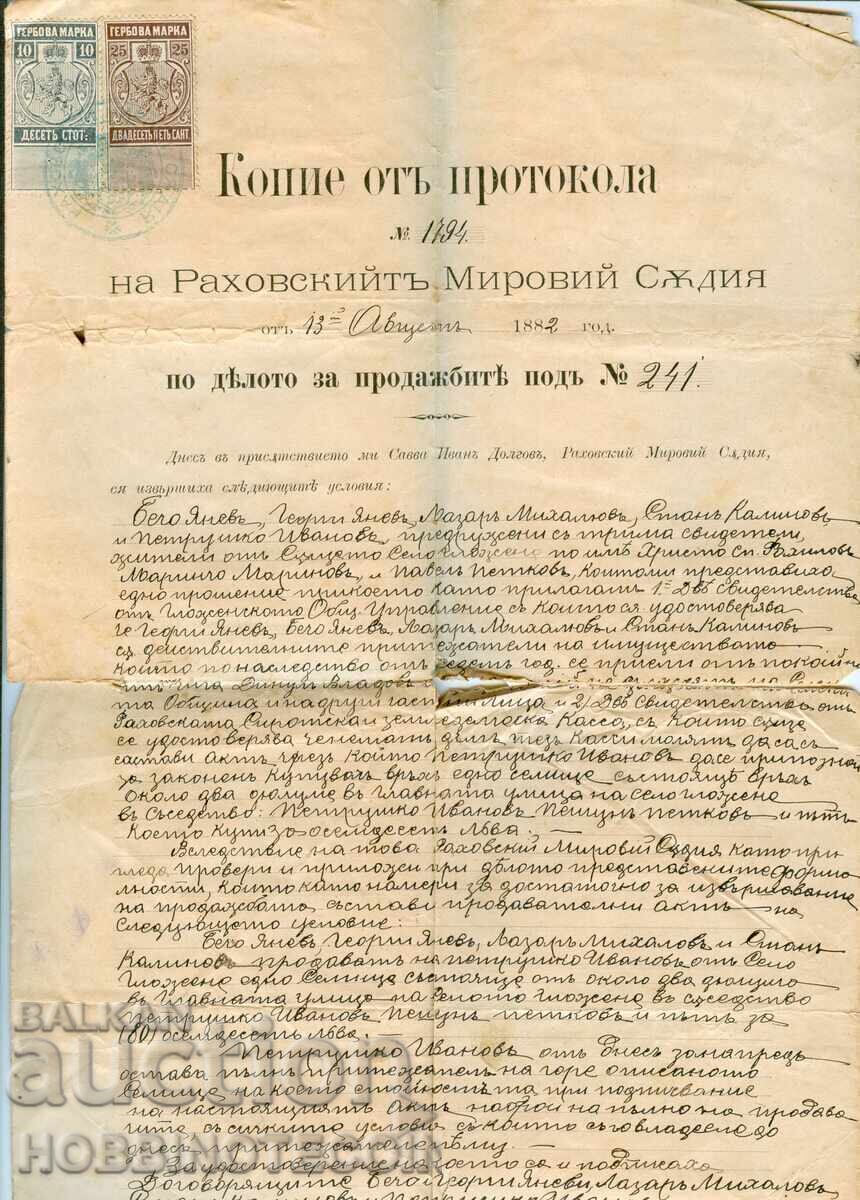 ГЕРБОВА МАРКА ГЕРБОВА МАРКА
10 10 25 25
ДЕСЕТЬ СТОТ: ДВАДЕСЕТЬ ПЕТЬ САНТ.
Копие отъ протокола
№ 1794.
на Раховскийтъ Мировий Сѫдия
отъ 13 Августъ 1882 год.
по дѣлото за продажбитѣ подъ № 241.
Днесъ въ присѫтствието ми Савва Иванъ Долговъ, Раховский Мировий Сѫдия,
ся извършиха слѣдующитѣ условия:
Бечо Яневъ, Георги Яневъ, Лазаръ Михалювъ, Станъ Калиновъ
и Петрушко Ивановъ, предружени съ трима свидетели,
жители отъ Сѫщето Село Гложене по имѣ Христо Сп.
Маринчо Мариновъ, и Павелъ Петковъ, които ми представиха
едно прошение при което като прилагатъ 1= Двѣ Свидетелства
отъ Гложенското Общ. Управление съ които ся удостоверява
че Георги Яневъ, Бечо Яневъ, Лазаръ Михалювъ и Станъ Калиновъ
сѫ действителните притежатели на имуществата
които по наследство отъ седемъ год. се приели отъ покойн
Динулъ Владовъ
та Община и на други частни лица и 2/ Двѣ Свидетелства отъ
Раховската Сиротска и земледелска Касса, съ които сѫщо
се удостоверява че нематъ дългъ тезъ Касси могатъ да съ
състави актъ чрезъ който Петрушко Ивановъ да се припознай
за законенъ Купувачъ връхъ едно селище състояще връхъ
около два дюлюме въ главната улица на село Гложене
въ съседство: Петрушко Ивановъ Пешунъ Петковъ и пътъ
което купи за оселдесетъ лѣва. —
Вследствие на това Раховский Мировий Сѫдия като при
гледа, провери и приложи при дѣлото представените формо
лности, които като намери за достаточно за извършвание
на продажбата състави продавателни актъ на
следующето условие:
Бечо Яневъ, Георги Яневъ, Лазаръ Михаловъ и Станъ
Калиновъ продаватъ на Петрушко Ивановъ отъ Село
Гложене едно Селище състояще отъ около два дюлюма
въ главната улица на селото Гложене въ съседство
Петрушко Ивановъ Пешунъ Петковъ и пътъ за
(80) осемдесетъ лѣва. —
Петрушко Ивановъ отъ днесъ за напредъ
остава пълнъ притежателъ на горе описаното
Селище на което стойностьта при подписвание
на настоящиятъ актъ на брой на пълно на продава
чите съ сичките условия съ които съ го владеле до
днесъ притежателете му. —
За удостоверение на което са и подписаха
Договорящите Бечо Георги Яневи, Лазаръ Михаловъ
BALKAN
auction
HOBBY NOT BOY